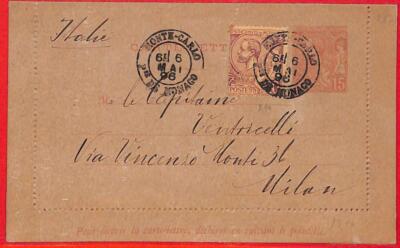 Italie
MONTE-CARLO
6E 6
MAI
96
PTÉ DE MONACO
MONTE-CARLO
6E 6
MAI
96
PTÉ DE MONACO
15
Le Capitaine
Ventricelli
Via Vincenzo Monti 36
Milan
Pour ouvrir la carte-lettre, déchirer en suivant le pointillé.